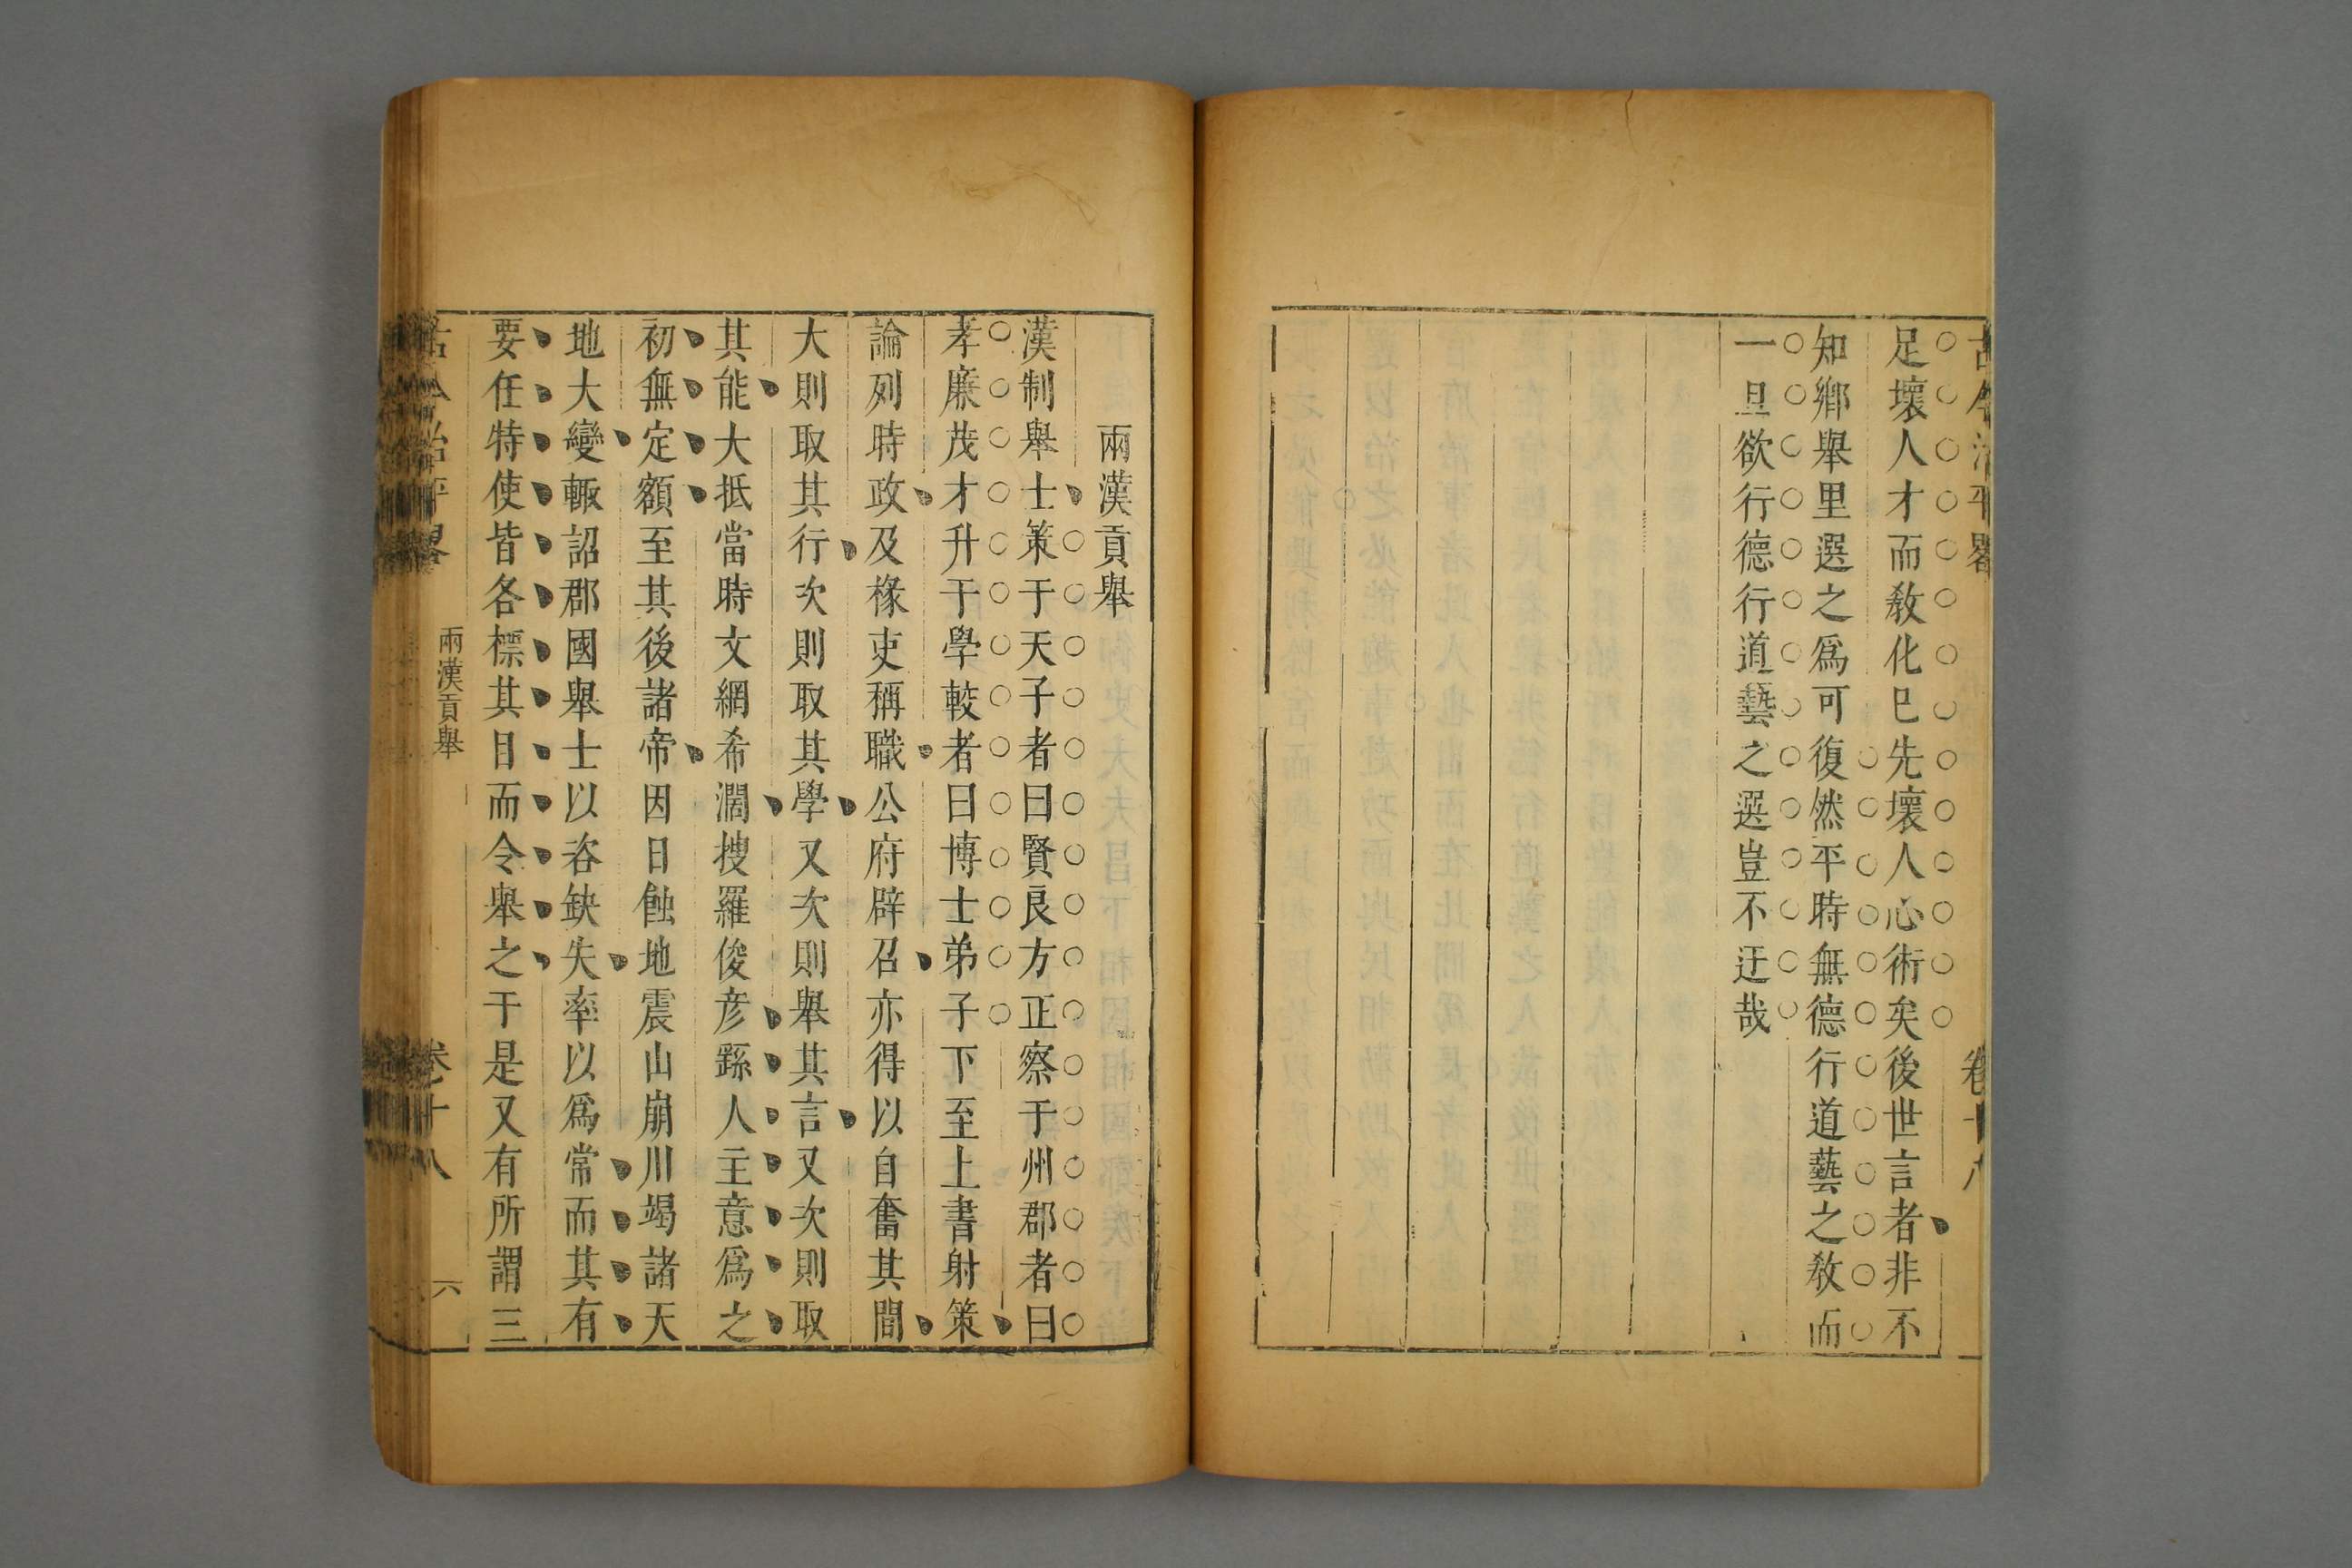 古今治平畧
卷十八
足壞人才而敎化已先壞人心術矣後世言者非不
知鄉舉里選之爲可復然平時無德行道藝之敎而
一旦欲行德行道藝之選豈不迂哉
兩漢貢舉
漢制舉士策于天子者曰賢良方正察于州郡者曰
孝廉茂才升于學較者曰博士弟子下至上書射策
論列時政及椽吏稱職公府辟召亦得以自奮其間
大則取其行次則取其學又次則舉其言又次則取
其能大抵當時文網希濶搜羅俊彥繇人主意爲之
初無定額至其後諸帝因日蝕地震山崩川竭諸天
地大變輒詔郡國舉士以咨缺失率以爲常而其有
要任特使皆各標其目而令舉之于是又有所謂三
古今治平畧
兩漢貢舉
卷十八
六